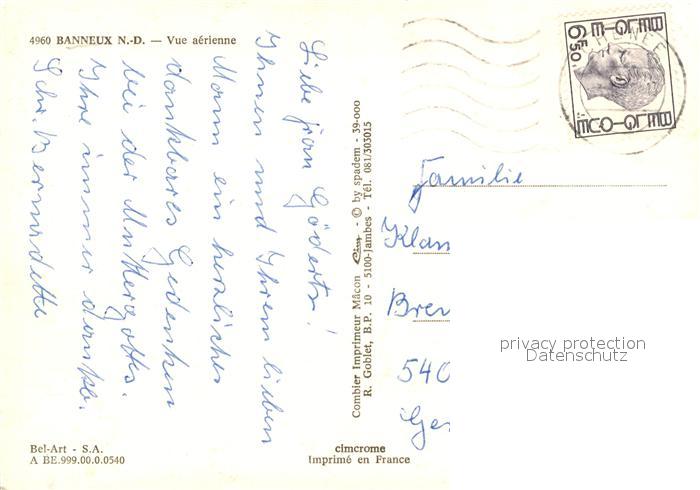 4960 BANNEUX N.-D. — Vue aérienne
Liebe Frau Göderts!
Ihnen und Ihrem lieben
Mann ein herzliches
dankbares Gedenken
bei der Muttergottes.
Ihre immer dankb.
Schw. Bernadette
Combier Imprimeur Mâcon Cim - © by spadem - 39-000
R. Goblet, B.P. 10 - 5100-Jambes - Tél. 081/303015
BELGIE
6F50
BELGIQUE
Familie
Klau
Bren
540
Ger
privacy protection
Datenschutz
Bel-Art - S.A.
A BE.999.00.0.0540
cimcrome
Imprimé en France